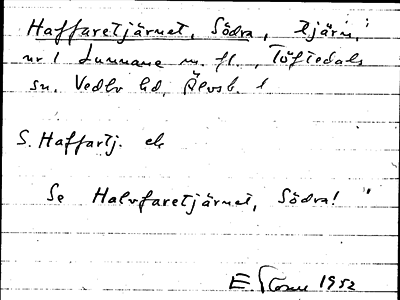 Haffaretjärnet, Södra, tjärn,
nr 1 Lunnane m. fl., Töftedals
sn. Vedbo hd, Älvsb. l
S. Haffartj. ek
Se Halvfaretjärnet, Södra!
E. 1952